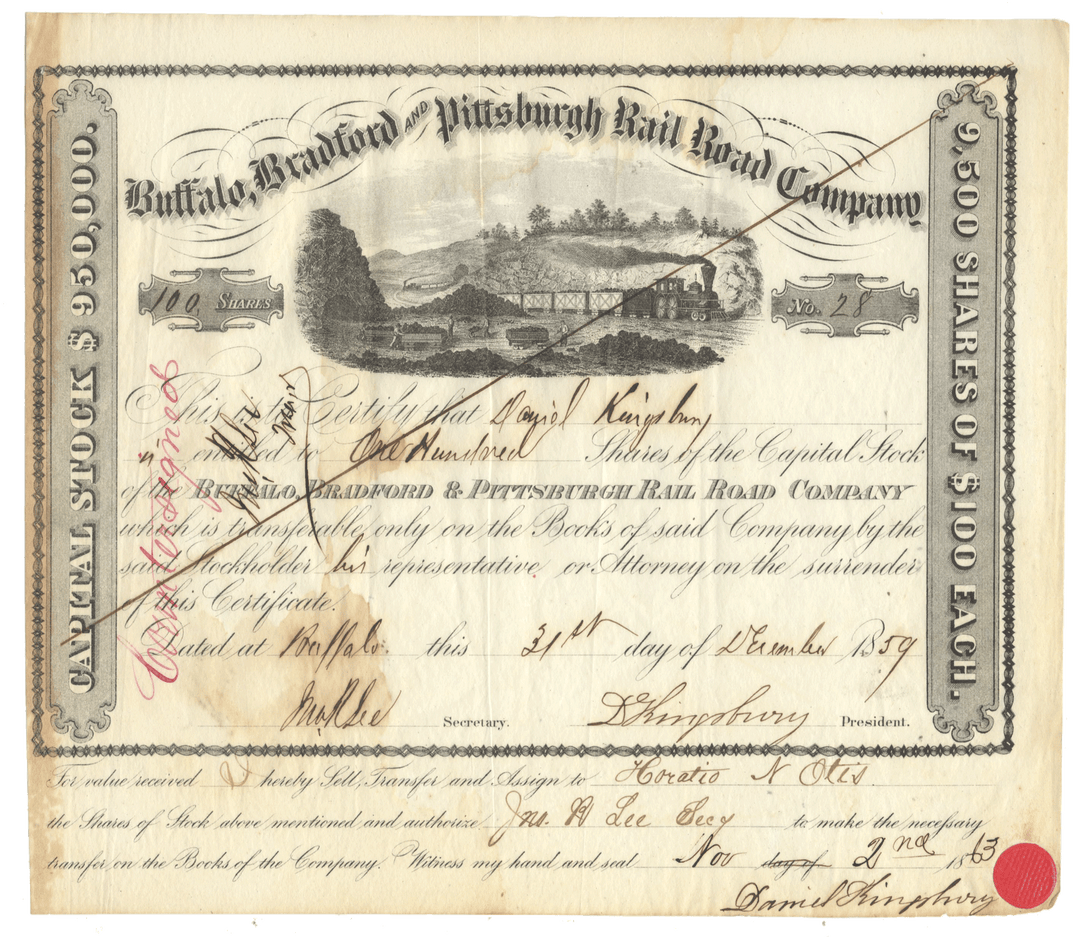 Buffalo, Bradford AND Pittsburgh Rail Road Company
CAPITAL STOCK $ 950,000.
9,500 SHARES OF $100 EACH.
100, SHARES
No. 28
Countersigned
This Certify that Daniel Kingsbury
is entitled to One Hundred Shares of the Capital Stock
of the BUFFALO, BRADFORD & PITTSBURGH RAIL ROAD COMPANY
which is transferable, only on the Books of said Company by the
said Stockholder his representative or Attorney on the surrender
of this Certificate.
Dated at Buffalo. this 31st day of December 1859
Jno R Lee Secretary. D Kingsbury President.
For value received I hereby Sell, Transfer and Assign to Horatio N Otis
the Shares of Stock above mentioned and authorize Jno. R Lee Secy to make the necessary
transfer on the Books of the Company. Witness my hand and seal Nov day of 2nd 1863
Daniel Kingsbury